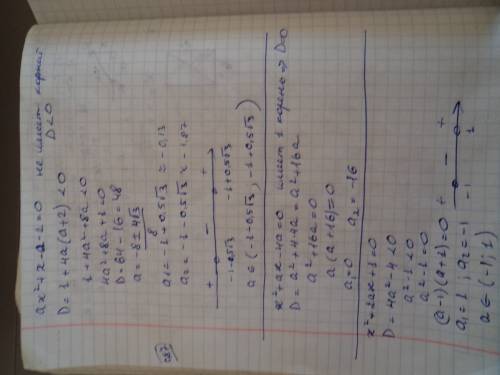 ax² + x - a - 2 = 0 не имеет корней
D < 0
D = 1 + 4a(a+2) < 0
1 + 4a² + 8a < 0
4a² + 8a + 1 = 0
D = 64 - 16 = 48
a = -8 ± 4√3
8
a₁ = -1 + 0,5√3 ≈ -0,13
a₂ = -1 - 0,5√3 ≈ -1,87
+ - +
-1-0,5√3 -1+0,5√3
a ∈ (-1-0,5√3; -1+0,5√3)
x² + ax - 4a = 0 имеет 1 корень => D=0
D = a² + 4·4a = a² + 16a
a² + 16a = 0
a(a+16) = 0
a₁ = 0 a₂ = -16
x² + 2ax + 1 = 0
D = 4a² - 4 < 0
a² - 1 < 0
a² - 1 = 0
(a-1)(a+1) = 0
a₁ = 1; a₂ = -1
+ - +
-1 1
a ∈ (-1; 1)